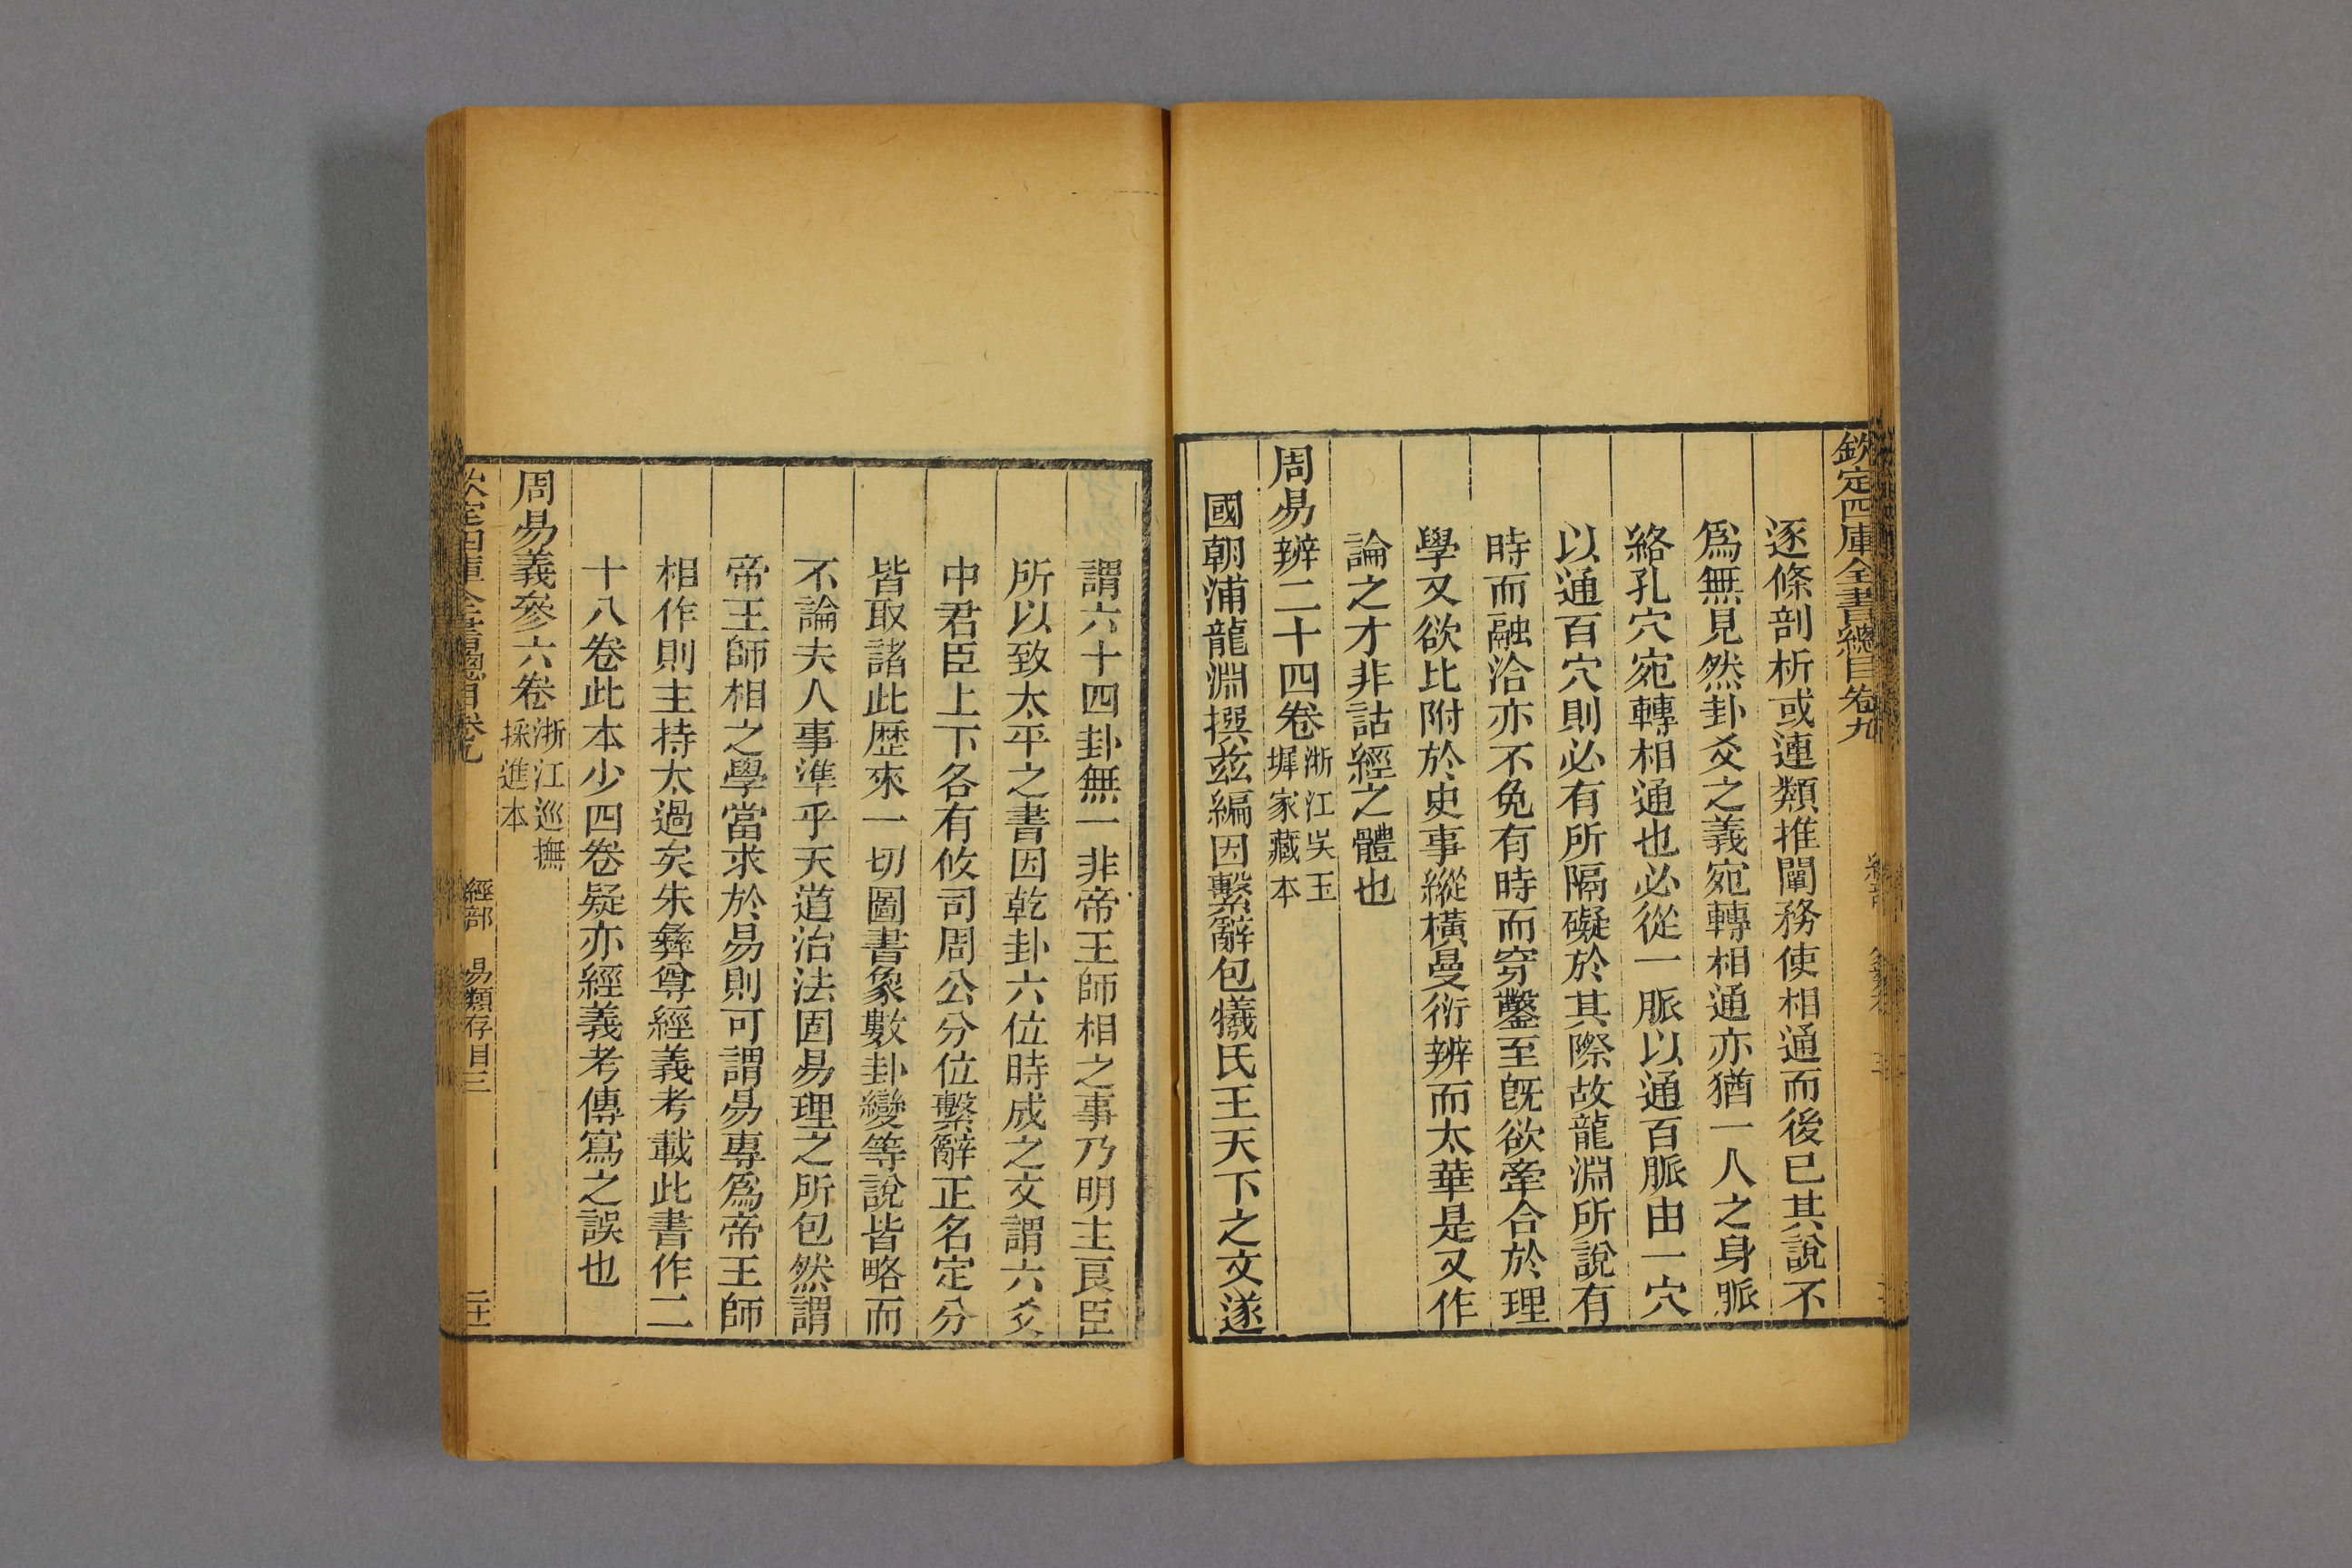 欽定四庫全書總目卷九
逐條剖析或連類推闡務使相通而後已其說不
爲無見然卦爻之義宛轉相通亦猶一人之身脈
絡孔穴宛轉相通也必從一脈以通百脈由一穴
以通百穴則必有所隔礙於其際故龍淵所說有
時而融洽亦不免有時而穿鑿至旣欲牽合於理
學又欲比附於史事縱橫曼衍辨而太華是又作
論之才非詁經之體也
周易辨二十四卷浙江吳玉墀家藏本
國朝浦龍淵撰茲編因繫辭包犧氏王天下之文遂
謂六十四卦無一非帝王師相之事乃明主良臣
所以致太平之書因乾卦六位時成之文謂六爻
中君臣上下各有攸司周公分位繫辭正名定分
皆取諸此歷來一切圖書象數卦變等說皆略而
不論夫人事準乎天道治法固易理之所包然謂
帝王師相之學當求於易則可謂易專爲帝王師
相作則主持太過矣朱彝尊經義考載此書作二
十八卷此本少四卷疑亦經義考傳寫之誤也
周易義參六卷浙江巡撫採進本
欽定四庫全書總目卷九 經部 易類存目三